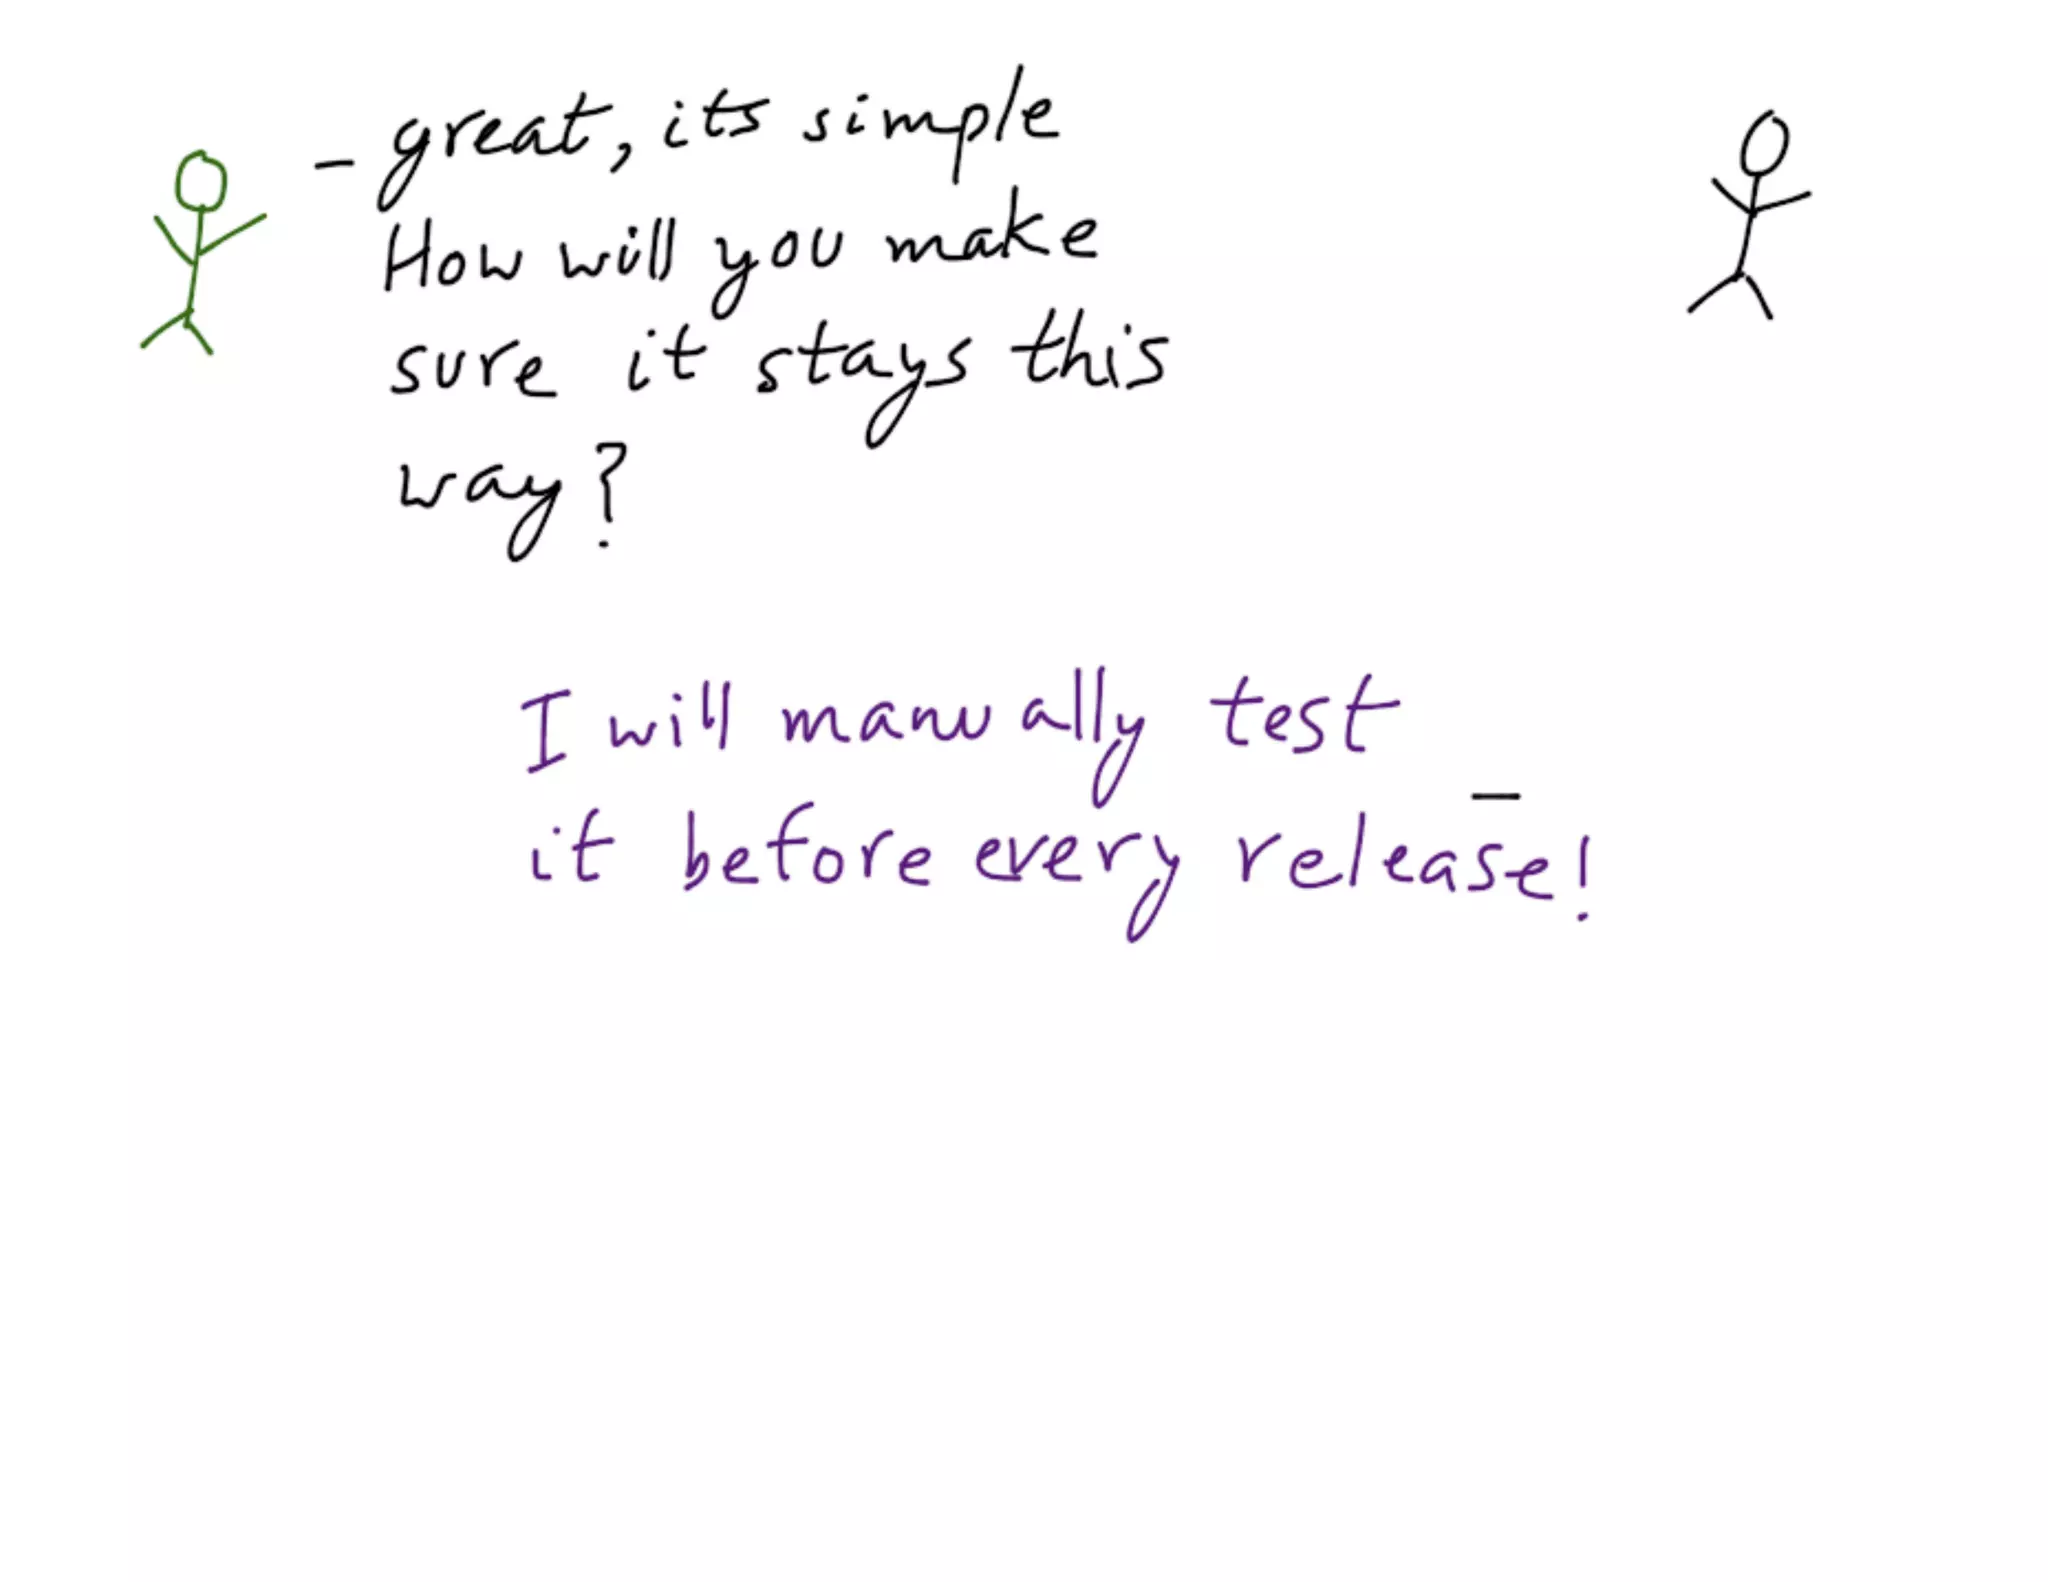 - great, its simple
How will you make
sure it stays this
way?
I will manually test
it before every release!